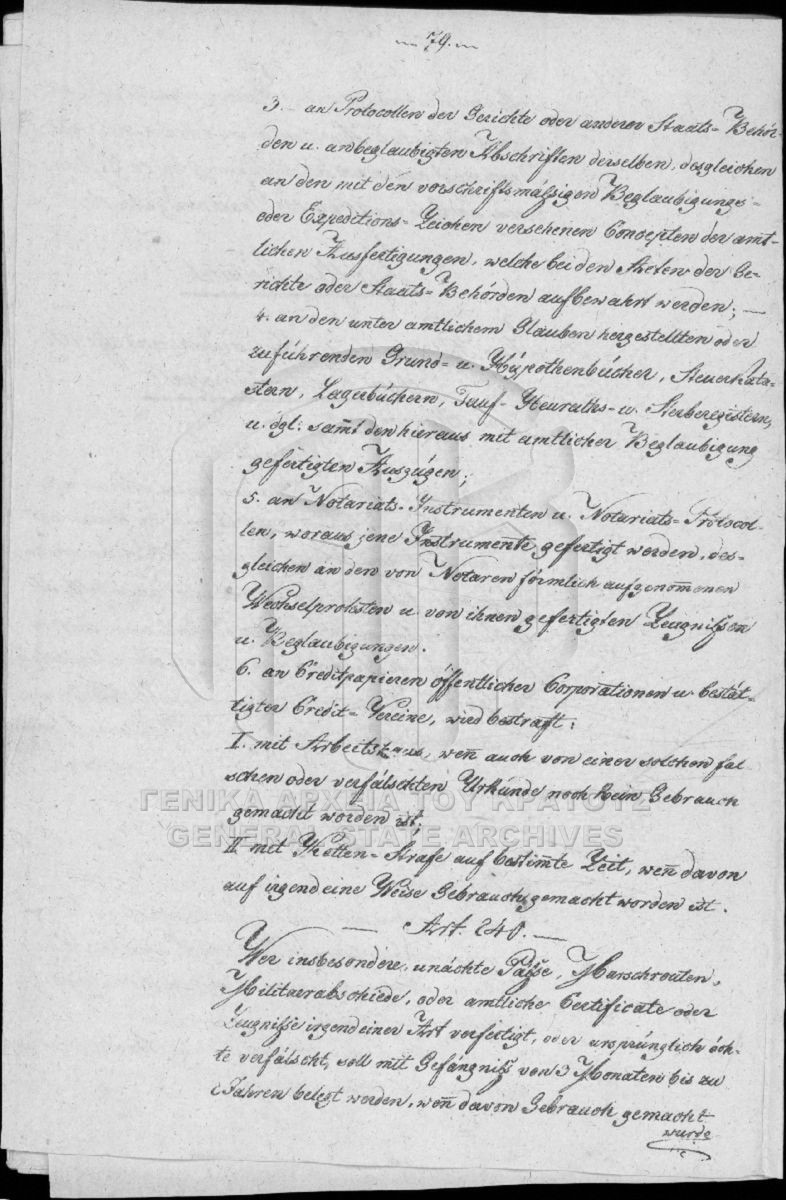 79.
3. an Protocollen der Gerichte oder anderer Staats-Behör-
den u. anbeglaubigten Abschriften derselben, desgleichen
an den mit den vorschriftsmäßigen Beglaubigungs-
oder Expeditions-Zeichen versehenen Concepten der amt-
lichen Ausfertigungen, welche bei den Acten der Ge-
richte oder Staats-Behörden aufbewahrt werden; —
4. an den unter amtlichem Glauben hergestellten oder
zuführenden Grund- u. Hypothenbücher, Steuerkata-
stern, Lagerbüchern, Tauf- Heuraths- u. Sterberegistern,
u. dgl: sam̅t den hieraus mit amtlicher Beglaubigung
gefertigten Auszügen;
5. an Notariats-Instrumenten u. Notariats-Protocol-
len, woraus jene Instrumente gefertigt werden, des-
gleichen an den von Notaren förmlich aufgenom̅enen
Wechselprotesten u. von ihnen gefertigten Zeugnißen
u. Beglaubigungen.
6. an Creditpapieren öffentlicher Corporationen u. bestät-
tigter Credit-Vereine, wird bestraft:
I. mit Arbeitshaus, wen̅ auch von einer solchen fal-
schen oder verfälschten Urkunde noch kein Gebrauch
gemacht worden ist,
II. mit Ketten-Strafe auf bestim̅te Zeit, wen̅ davon
auf irgend eine Weise Gebrauch gemacht worden ist.
— Art. 240. —
Wer insbesondere, unächte Päße, Marschrouten,
Militaerabschiede, oder amtliche Certificate oder
Zeugniße irgend einer Art verfertigt, oder ursprünglich äch-
te verfälscht, soll mit Gefängniß von 3 Monaten bis zu
2 Jahren belegt werden, wen̅ davon Gebrauch gemacht
wurde
ΓΕΝΙΚΑ ΑΡΧΕΙΑ ΤΟΥ ΚΡΑΤΟΥΣ
GENERAL STATE ARCHIVES